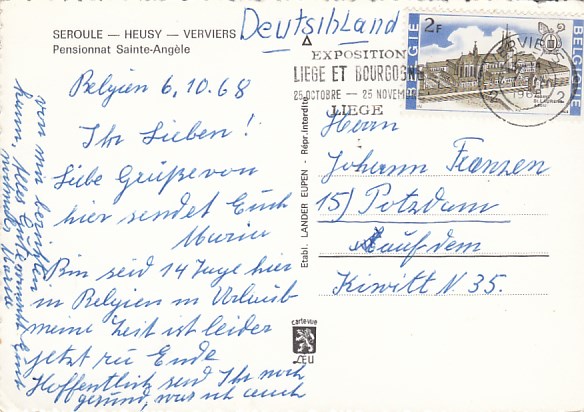 SEROULE — HEUSY — VERVIERS
Pensionnat Sainte-Angèle
Belgien 6.10.68
Ihr Lieben!
Liebe Grüße von
hier sendet Euch
Maria
Bin seid 14 Tage hier
in Belgien in Urlaub
meine Zeit ist leider
jetzt zu Ende
Hoffentlich seid Ihr noch
gesund, was ich auch
von mir berichten
kann. Alles Gute
Maria
Deutschland
EXPOSITION
LIEGE ET BOURGOGNE
25 OCTOBRE — 25 NOVEMBRE
LIEGE
2F
BELGIE
BELGIQUE
VERVIERS
Herrn
Johann Franzen
15) Potzdam
Auf dem
Kiwitt N. 35.
Etabl. LANDER EUPEN - Répr. interdite
cartevue
LEU